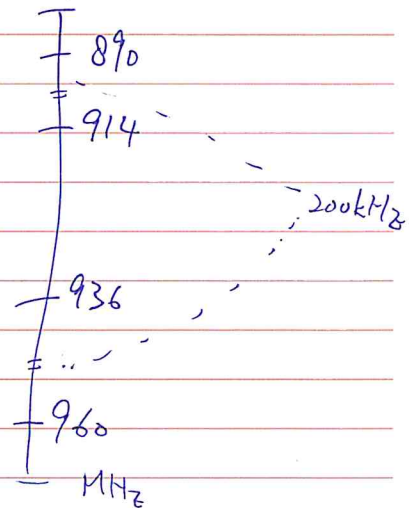 890
914
200kHz
936
960
MHz